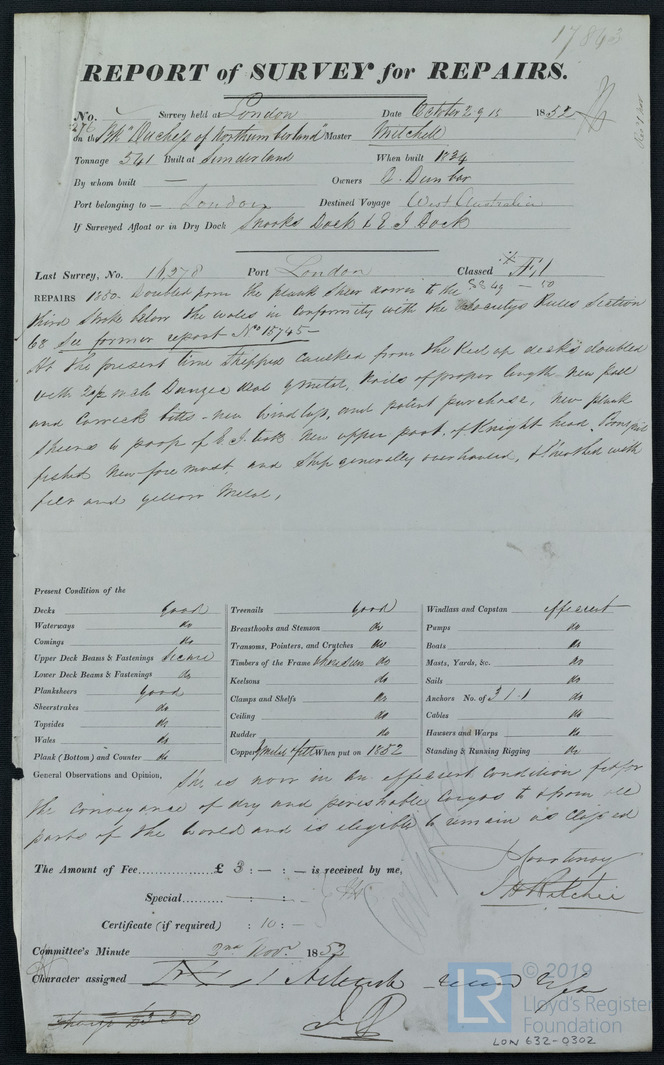 17843
REPORT of SURVEY for REPAIRS.
No. 276 Survey held at London Date October 29 1852
on the Bk "Duchess of Northumberland" Master Mitchell
Tonnage 541 Built at Sunderland When built 1834
By whom built — Owners D. Dunbar
Port belonging to — London Destined Voyage West Australia
If Surveyed Afloat or in Dry Dock Snooks Dock & E I Dock
Last Survey, No. 16,278 Port London Classed Æ1
REPAIRS 1850. Doubled from the plank sheer down to the
third strake below the wales in conformity with the Societys Rules Section
68 See former report No 15745 —
At the present time stripped caulked from the Keel up decks doubled
with inch Danzic deal & metal, Nails of proper length new pall
and Carrick bitts — new windlass, and patent purchase, new plank
sheers to poop of E. I. teak New upper part of Knight head, Bowsprit
fished New fore mast and Ship generally overhauled, & sheathed with
felt and yellow Metal,
Present Condition of the
Decks good Treenails good Windlass and Capstan efficient
Waterways do Breasthooks and Stemson do Pumps do
Comings do Transoms, Pointers, and Crutches do Boats do
Upper Deck Beams & Fastenings Secure Timbers of the Frame where seen do Masts, Yards, &c. do
Lower Deck Beams & Fastenings do Keelsons do Sails do
Planksheers good Clamps and Shelfs do Anchors No. of 3 1.1 do
Sheerstrakes do Ceiling do Cables do
Topsides do Rudder do Hawsers and Warps do
Wales do Copper When put on 1852 Standing & Running Rigging do
Plank (Bottom) and Counter do
General Observations and Opinion, She is now in an efficient condition fit for
the conveyance of dry and perishable cargos to & from all
parts of the World and is eligible to remain as Classed
Courtenay
The Amount of Fee £ 3 : — : — is received by me,
J H Ritchie
Special
Certificate (if required) : 10 : —
Committee's Minute 2nd Novr. 1852
Character assigned
© 2019
LR
Lloyd's Register
Foundation
LON 632-0302